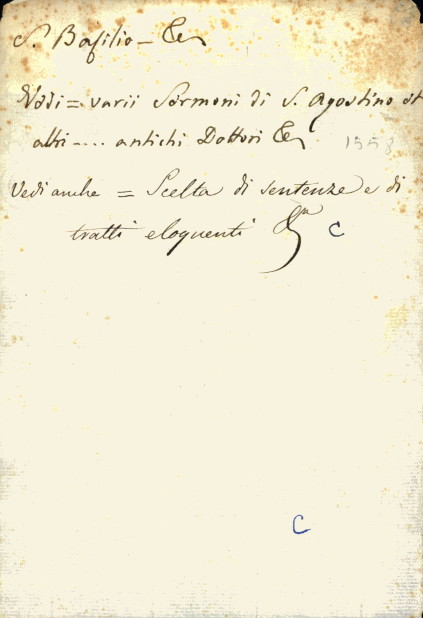 S. Basilio - &c
Vedi = varii Sermoni di S. Agostino et
altri .... antichi Dottori &c 1558
Vedi anche = Scelta di sentenze e di
tratti eloquenti &c C
C